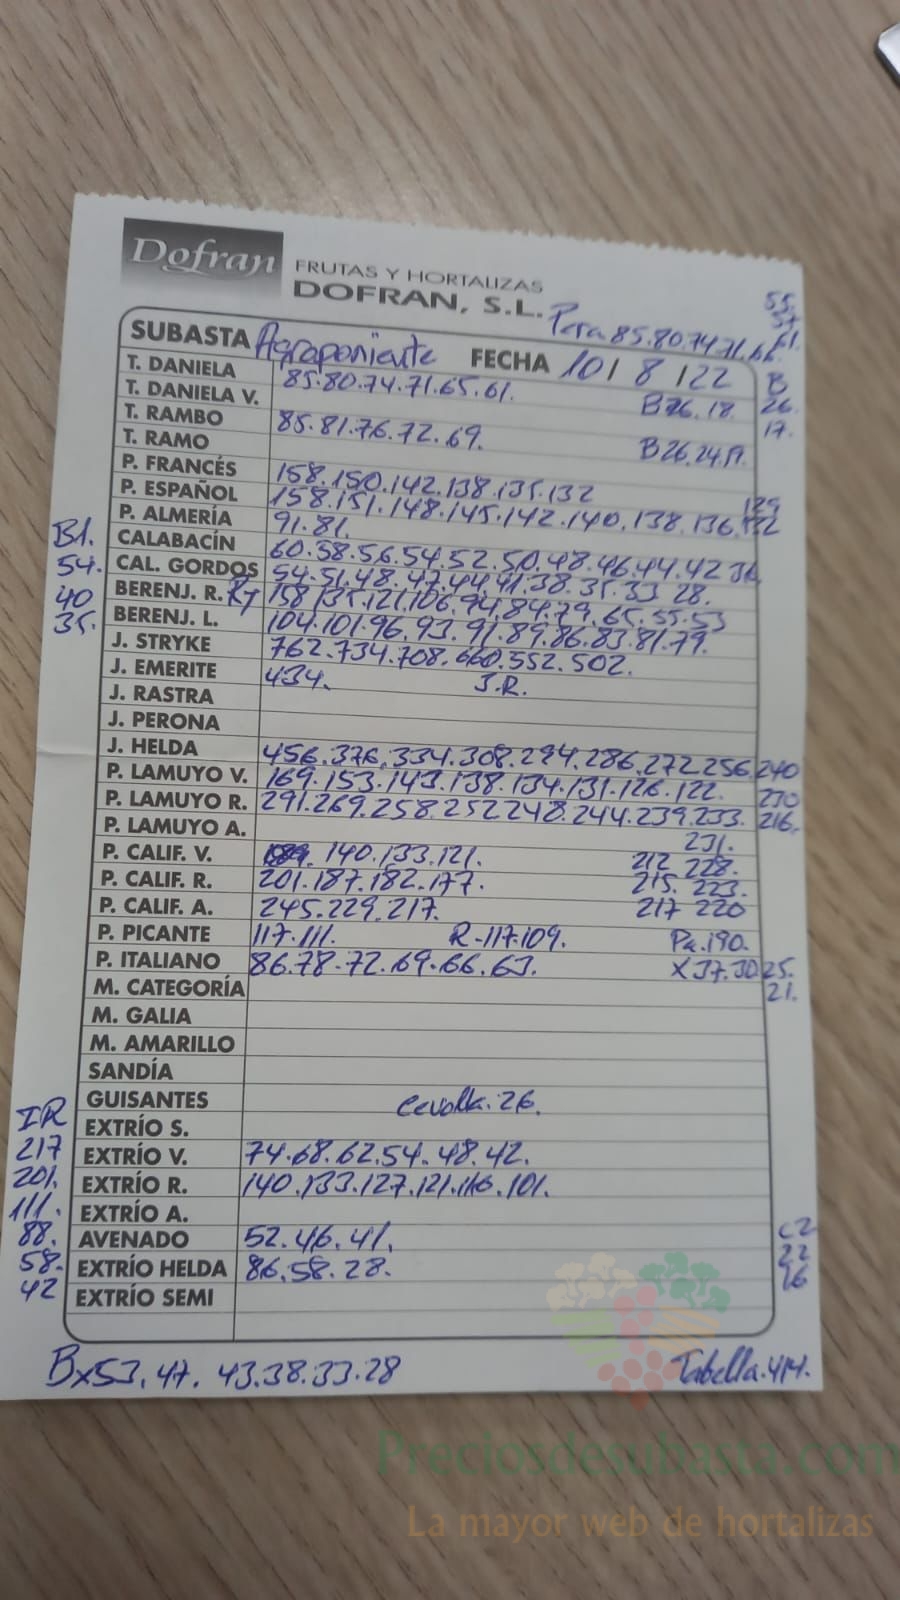 Dofran
FRUTAS Y HORTALIZAS
DOFRAN, S.L.
Pera 85.80.74.71.66.61.
55.
57
SUBASTA Agraponiente FECHA 10/8/22
B
26.
17.
T. DANIELA 85.80.74.71.65.61.
T. DANIELA V. B26.18.
T. RAMBO 85.81.76.72.69.
T. RAMO B26.24.19.
P. FRANCÉS 158.150.142.138.135.132 129
P. ESPAÑOL 158.151.148.145.142.140.138.136.132
P. ALMERÍA 91.81.
CALABACÍN 60.58.56.54.52.50.48.46.44.42 36
CAL. GORDOS 54.51.48.47.44.41.38.35.33 28.
B1.
54.
40
35.
BERENJ. R. RJ 158.135.121.106.94.84.79.65.55.53
BERENJ. L. 104.101.96.93.91.89.86.83.81.79.
J. STRYKE 762.734.708.660.552.502.
J. EMERITE 434. J.R.
J. RASTRA
J. PERONA
J. HELDA 456.376.334.308.294.286.272.256.240
P. LAMUYO V. 169.153.143.138.134.131.126.122. 230
P. LAMUYO R. 291.269.258.252 248.244.239.233. 216.
P. LAMUYO A. 231.
P. CALIF. V. 140.133.121. 212 228.
P. CALIF. R. 201.187.182.177. 215. 223.
P. CALIF. A. 245.229.217. 217 220
P. PICANTE 117.111. R-117.109. Pa.190.
P. ITALIANO 86.78.72.69.66.63. X 37.30.25.
21.
M. CATEGORÍA
M. GALIA
M. AMARILLO
SANDÍA
GUISANTES cevolla.26.
EXTRÍO S.
EXTRÍO V. 74.68.62.54.48.42.
EXTRÍO R. 140.133.127.121.116.101.
EXTRÍO A.
AVENADO 52.46.41.
EXTRÍO HELDA 86.58.28.
EXTRÍO SEMI
IR
217
201.
111.
88.
58.
42
C2
22
16
Bx53.47.43.38.33.28
Tabella.414.
Preciosdesubasta.com
La mayor web de hortalizas